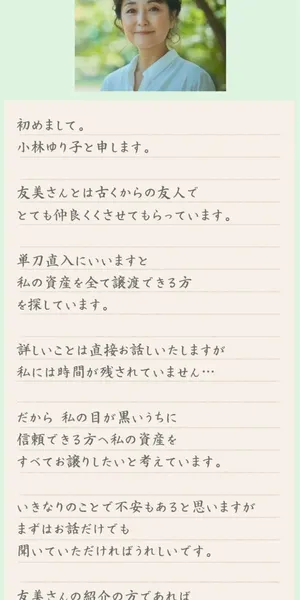 初めまして。
小林ゆり子と申します。
友美さんとは古くからの友人で
とても仲良くくさせてもらっています。
単刀直入にいいますと
私の資産を全て譲渡できる方
を探しています。
詳しいことは直接お話しいたしますが
私には時間が残されていません…
だから 私の目が黒いうちに
信頼できる方へ私の資産を
すべてお譲りしたいと考えています。
いきなりのことで不安もあると思いますが
まずはお話だけでも
聞いていただければうれしいです。
友美さんの紹介の方であれば